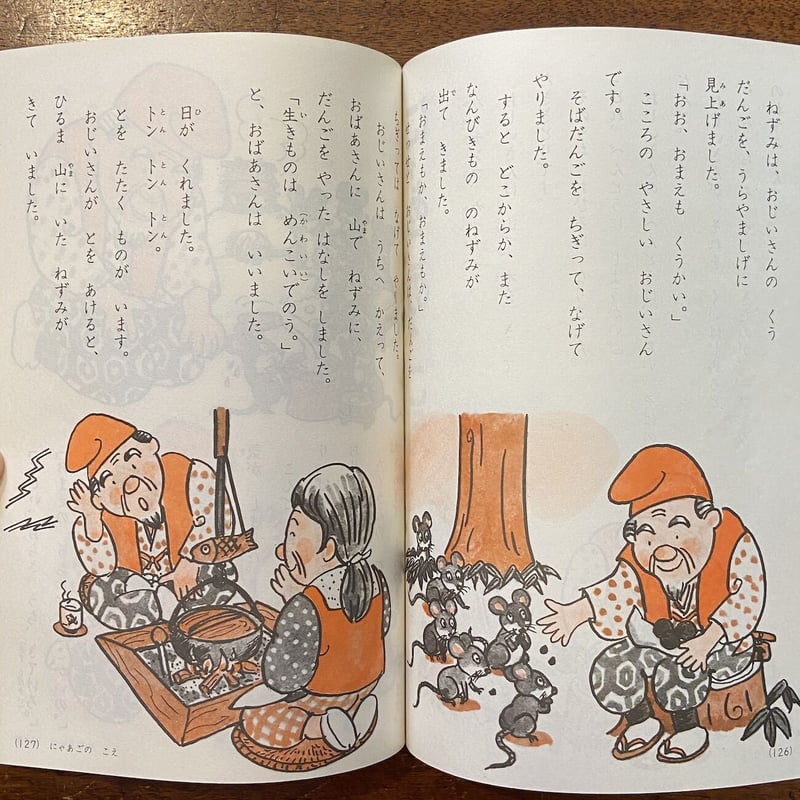 ねずみは、おじいさんの くう
だんごを、うらやましげに
見上げました。
「おお、おまえも くうかい。」
こころの やさしい おじいさん
です。
そばだんごを ちぎって、なげて
やりました。
すると どこからか、また
なんびきもの のねずみが
出て きました。
「おまえもか、おまえもか。」
せっせと おじいさんは、だんごを
ちぎっては なげて やりました。
(126)
おじいさんは うちへ かえって、
おばあさんに 山で ねずみに、
だんごを やった はなしを しました。
「生きものは めんこいでのう。」
(かわいい)
と、おばあさんは いいました。
日が くれました。
トン トン トン。
とを たたく ものが います。
おじいさんが とを あけると、
ひるま 山に いた ねずみが
きて いました。
(127) にゃあごの こえ